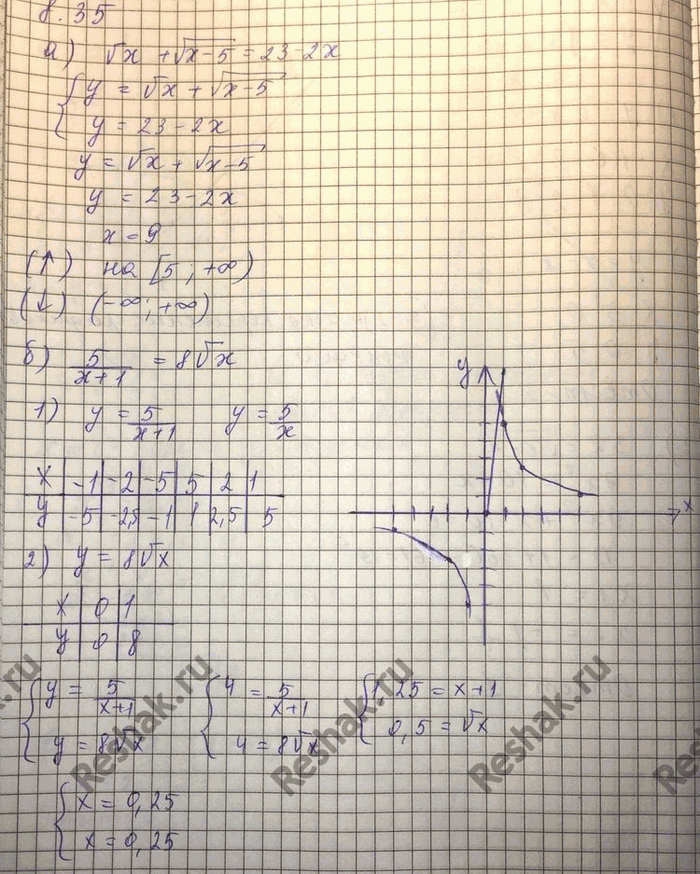 8.35
а) √x + √x-5 = 23-2x
{ y = √x + √x-5
y = 23-2x
y = √x + √x-5
y = 23-2x
x = 9
(↑) на [5; +∞)
(↓) (-∞; +∞)
б) 5/x+1 = 8√x
1) y = 5/x+1 y = 5/x
x | -1 | -2 | -5 | 5 | 2 | 1
y | -5 | -2,5 | -1 | 1 | 2,5 | 5
2) y = 8√x
x | 0 | 1
y | 0 | 8
y
x
{ y = 5/x+1 { 4 = 5/x+1 { 1,25 = x+1
y = 8√x 4 = 8√x 0,5 = √x
{ x = 0,25
x = 0,25
Reshak.ru
Reshak.ru
Reshak.ru